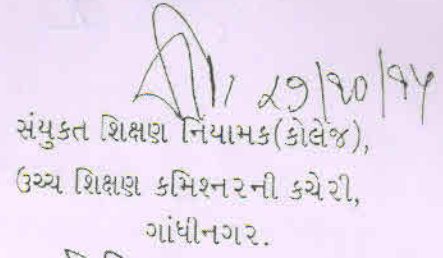 ૨૭/૧૦/૧૫
સંયુકત શિક્ષણ નિયામક(કોલેજ),
ઉચ્ચ શિક્ષણ કમિશ્નરની કચેરી,
ગાંધીનગર.